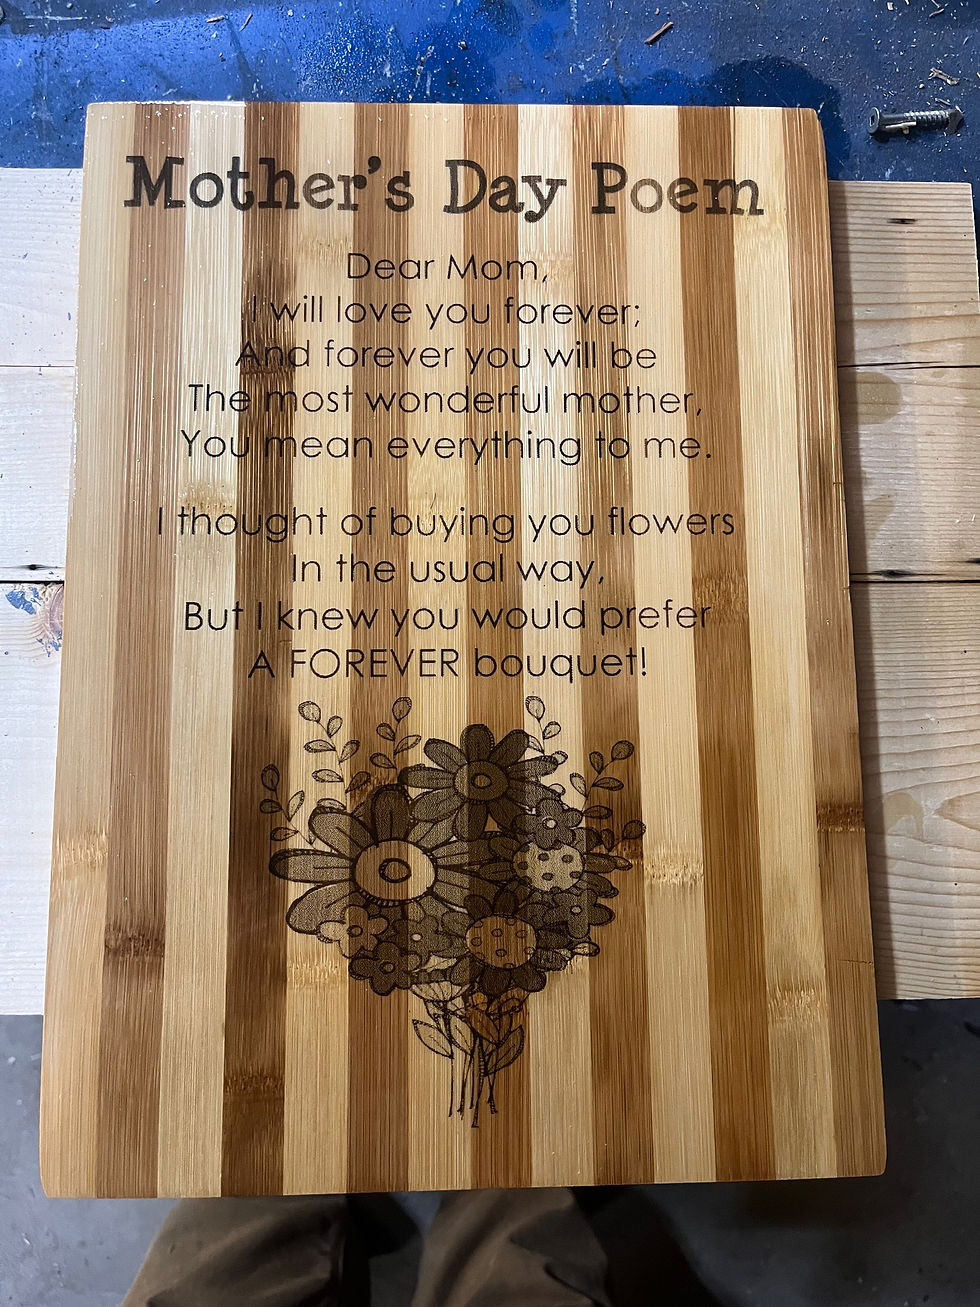 Mother's Day Poem
Dear Mom,
I will love you forever;
And forever you will be
The most wonderful mother,
You mean everything to me.
I thought of buying you flowers
In the usual way,
But I knew you would prefer
A FOREVER bouquet!